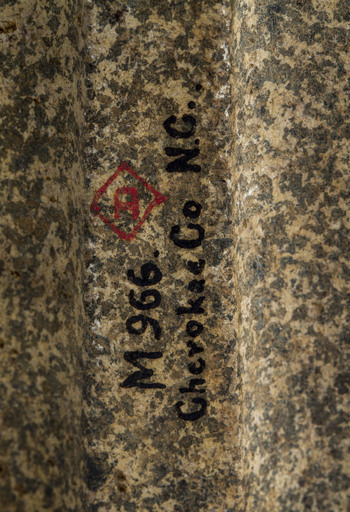 M 966.
Cherokee Co N.C..